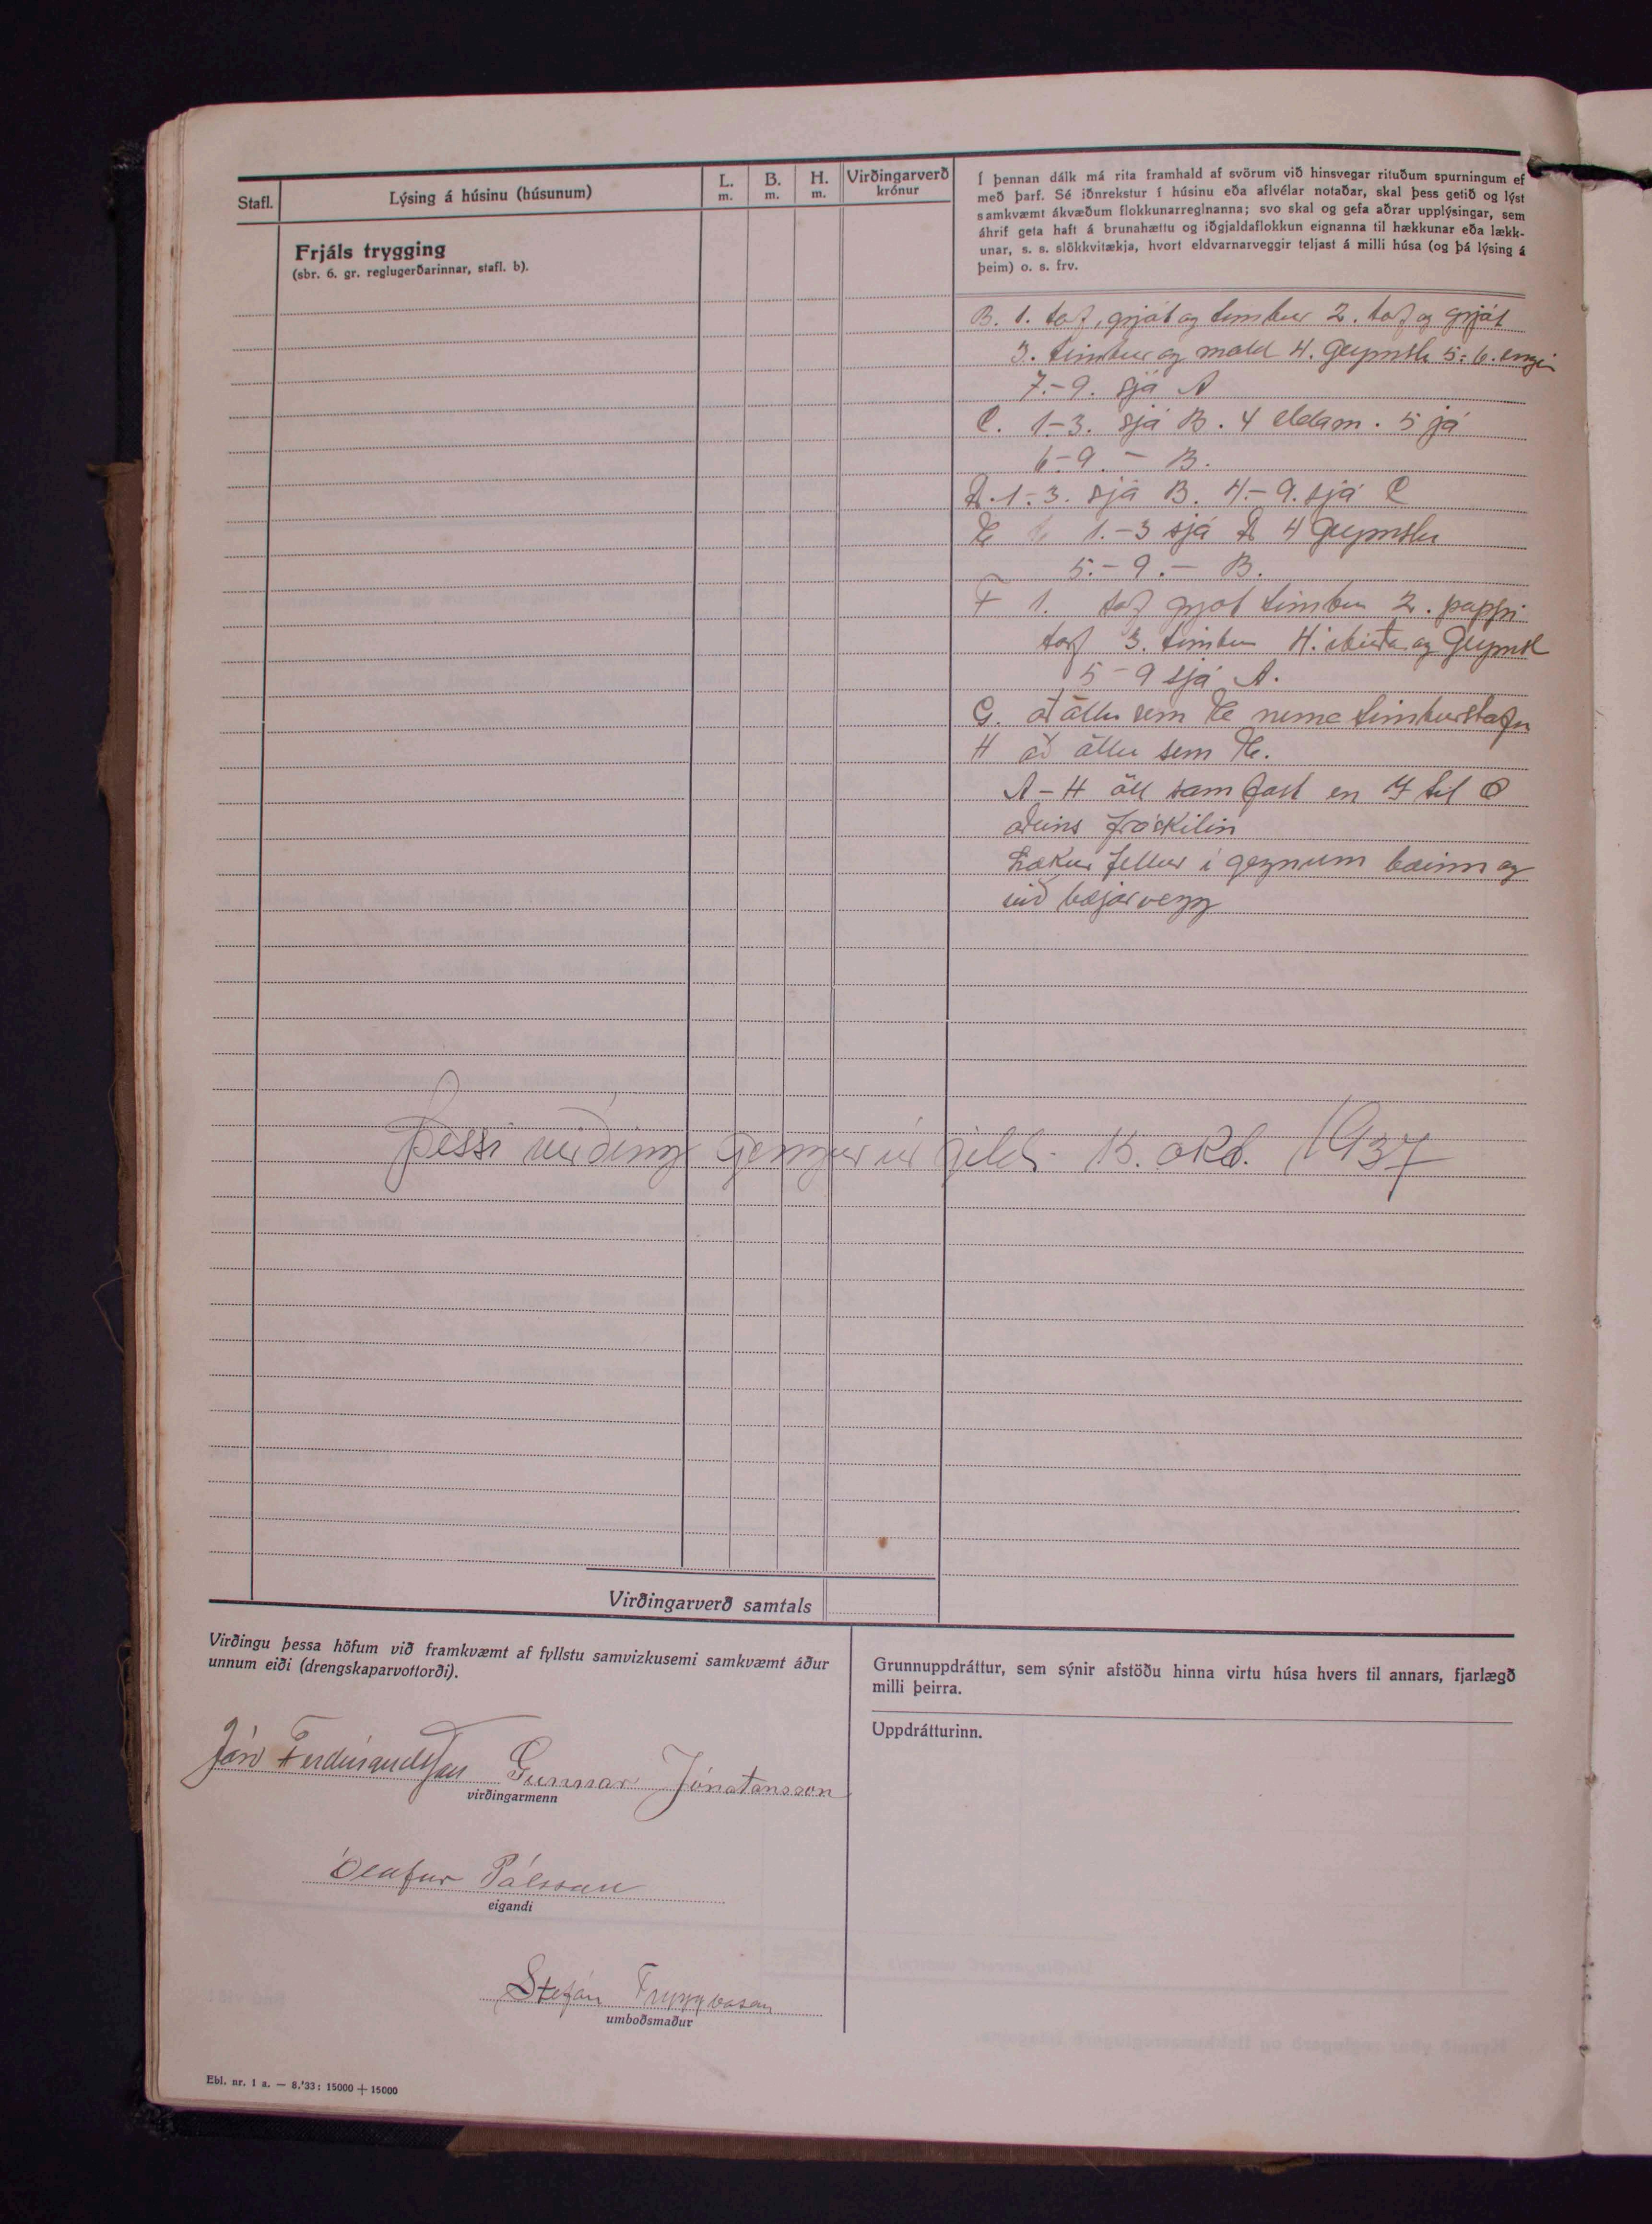 Stafl.
Lýsing á húsinu (húsunum)
L.
m.
B.
m.
H.
m.
Virðingarverð
krónur
Frjáls trygging
(sbr. 6. gr. reglugerðarinnar, stafl. b).
Í þennan dálk má rita framhald af svörum við hinsvegar rituðum spurningum ef
með þarf. Sé iðnrekstur í húsinu eða aflvélar notaðar, skal þess getið og lýst
samkvæmt ákvæðum flokkunarreglnanna; svo skal og gefa aðrar upplýsingar, sem
áhrif geta haft á brunahættu og iðgjaldaflokkun eignanna til hækkunar eða lækk-
unar, s. s. slökkvitækja, hvort eldvarnarveggir teljast á milli húsa (og þá lýsing á
þeim) o. s. frv.
B. 1. torf, grjót og timbur 2. torf og grjót
3. timbur og mold 4. geymsla 5.-6. engin
7.-9. sjá A
C. 1-3. sjá B. 4 eldam. 5 já
6-9. - B.
D. 1-3. sjá B. 4.-9. sjá C
E 1.-3 sjá D 4 geymslu
5.-9. - B.
F 1. torf grjót timbur 2. pappi
torf 3. timbur 4. og geymsl
5-9 sjá A.
G. að öllu sem E nema timburstafn
H að öllu sem E.
A-H öll samfast en
aðeins fráskilin
Lækur fellur í gegnum bæinn og
við bæjarvegg
Þessi virðing gengur úr gildi 15. okt. 1937
Virðingarverð samtals
Virðingu þessa höfum við framkvæmt af fyllstu samvizkusemi samkvæmt áður
unnum eiði (drengskaparvottorði).
Jón Ferdinandsson Gunnar Jónatansson
virðingarmenn
Ólafur Pálsson
eigandi
Stefán Tryggvason
umboðsmaður
Grunnuppdráttur, sem sýnir afstöðu hinna virtu húsa hvers til annars, fjarlægð
milli þeirra.
Uppdrátturinn.
Ebl. nr. 1 a. — 8.'33: 15000 + 15000